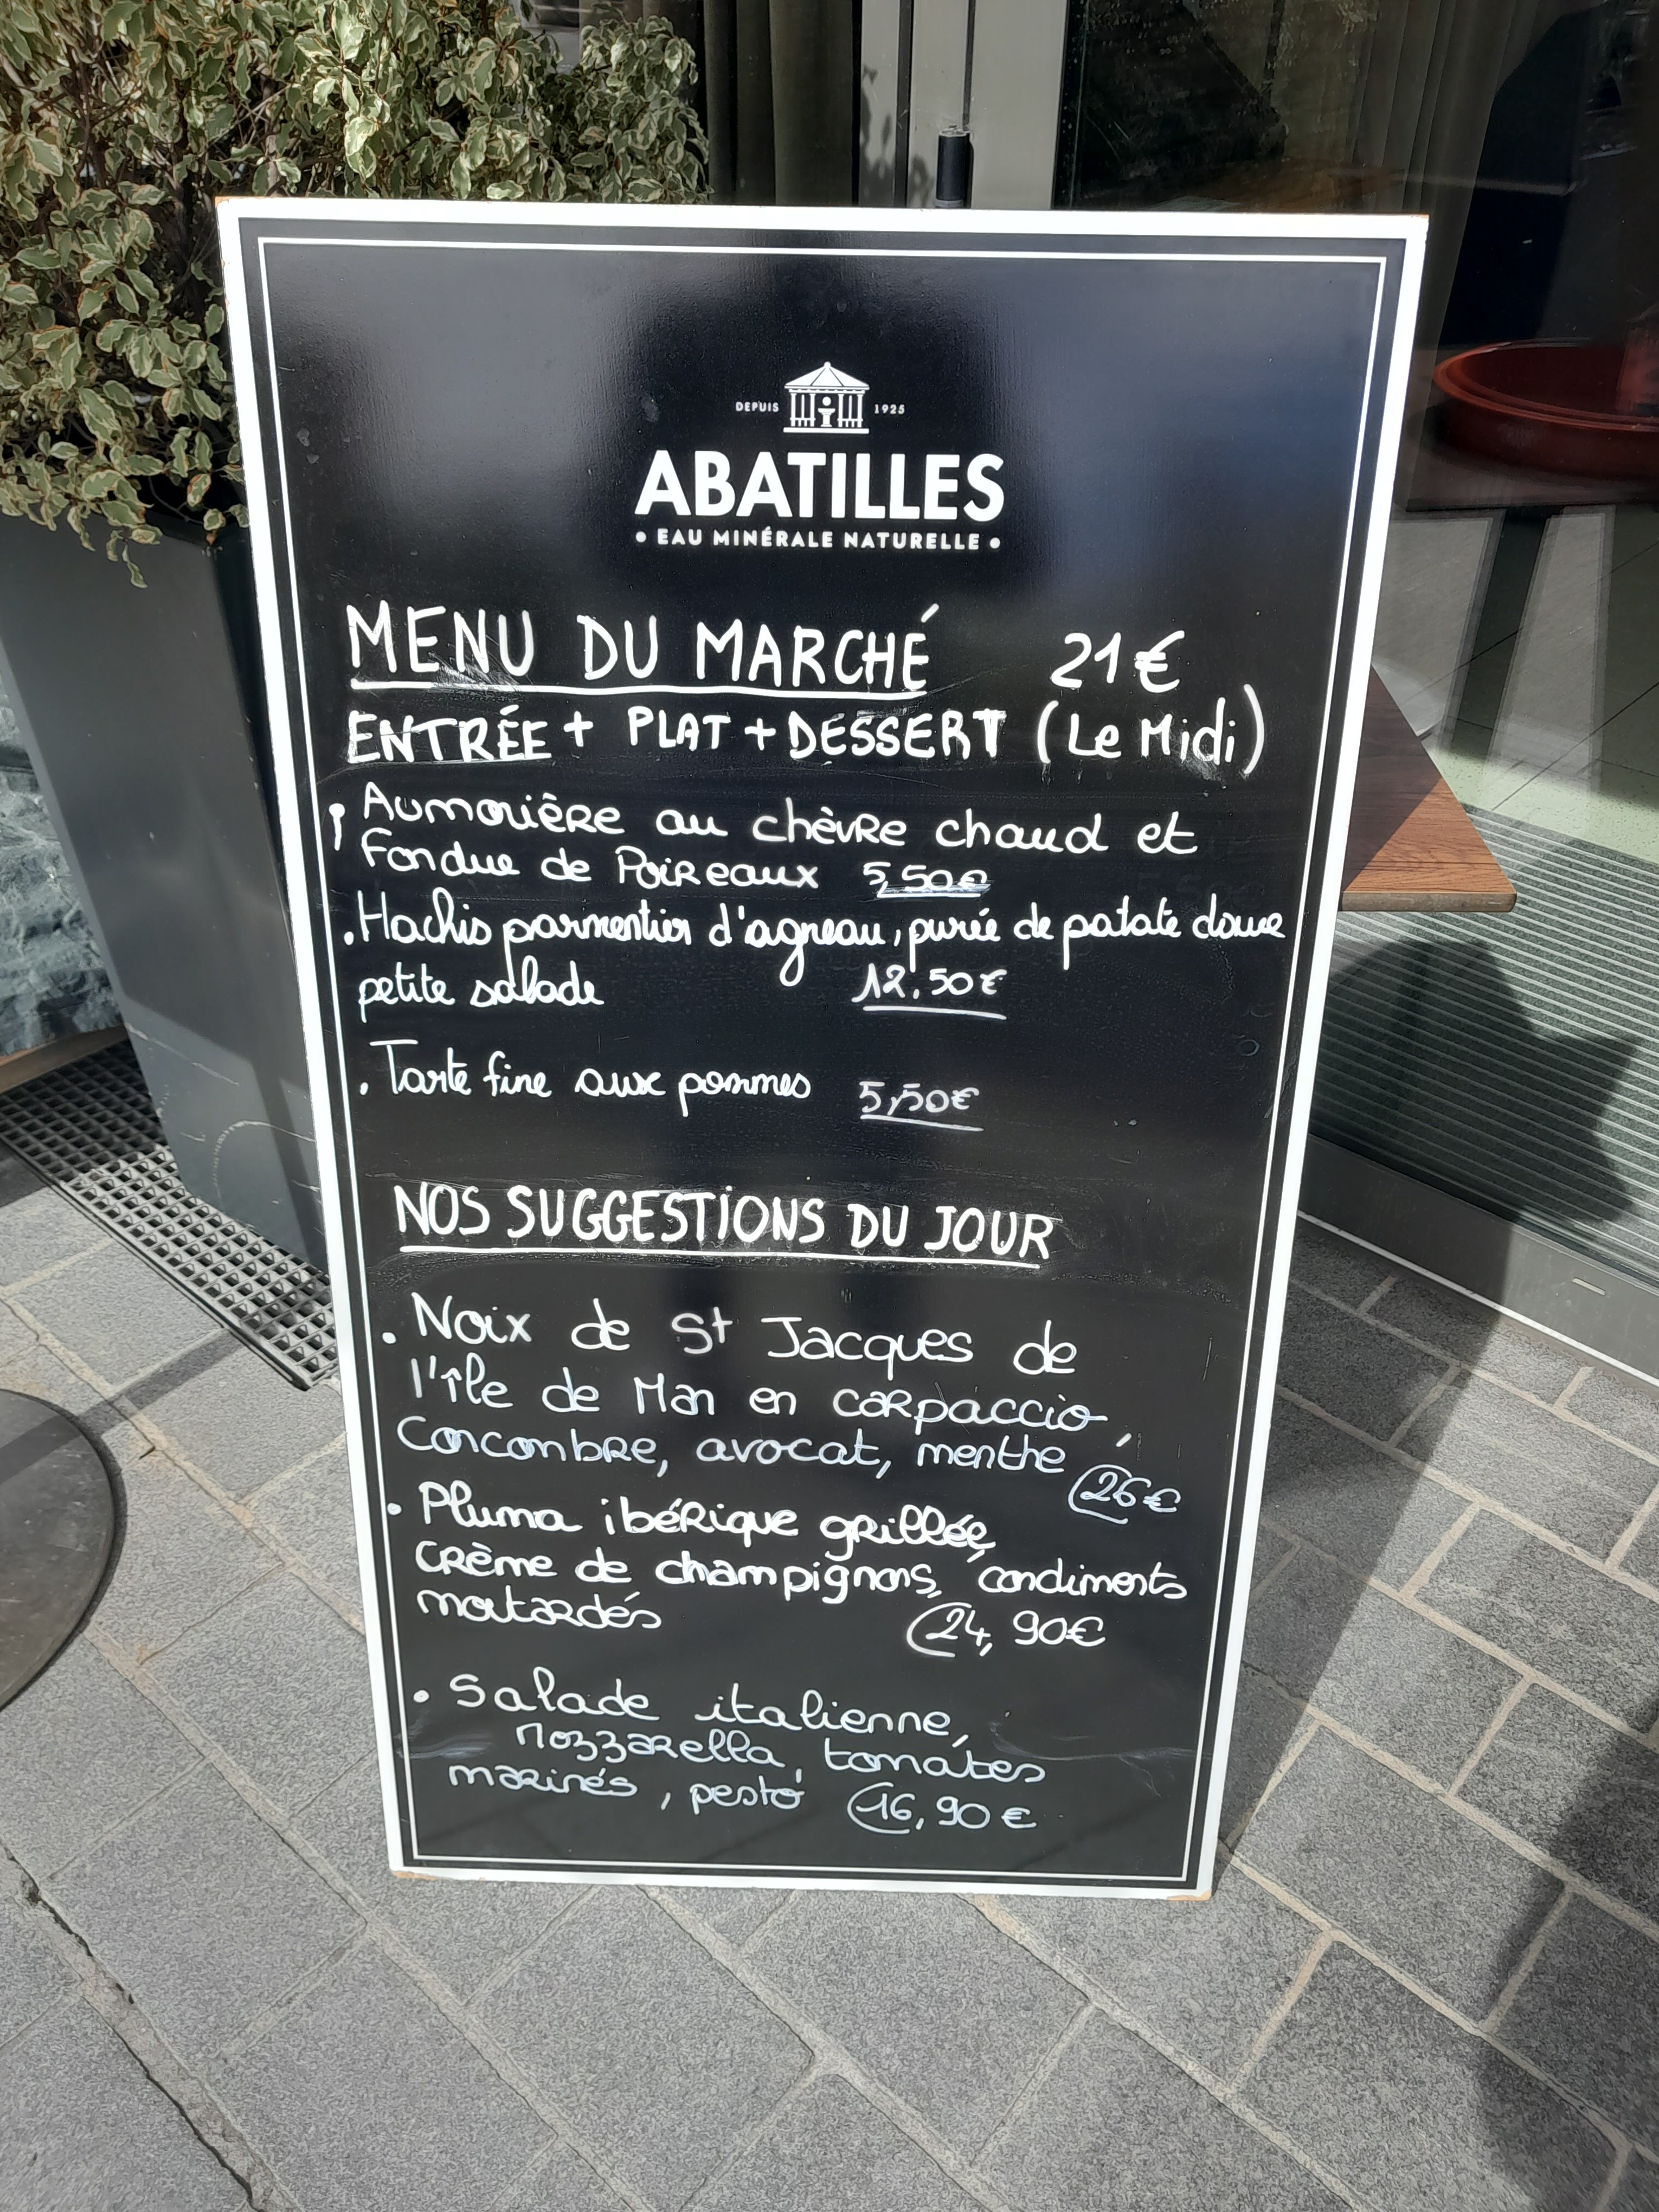 DEPUIS 1925
ABATILLES
• EAU MINÉRALE NATURELLE •
MENU DU MARCHÉ 21€
ENTRÉE + PLAT + DESSERT (Le Midi)
• Aumonière au chèvre chaud et
Fondue de Poireaux 5,50€
. Hachis parmentier d'agneau, purée de patate douce
petite salade 12.50€
. Tarte fine aux pommes 5,50€
NOS SUGGESTIONS DU JOUR
. Noix de St Jacques de
l'île de Man en carpaccio,
Concombre, avocat, menthe 26€
• Pluma ibérique grillée,
crème de champignons, condiments
moutardés 24,90€
• Salade italienne,
Mozzarella, tomates
marinés, pesto 16,90€